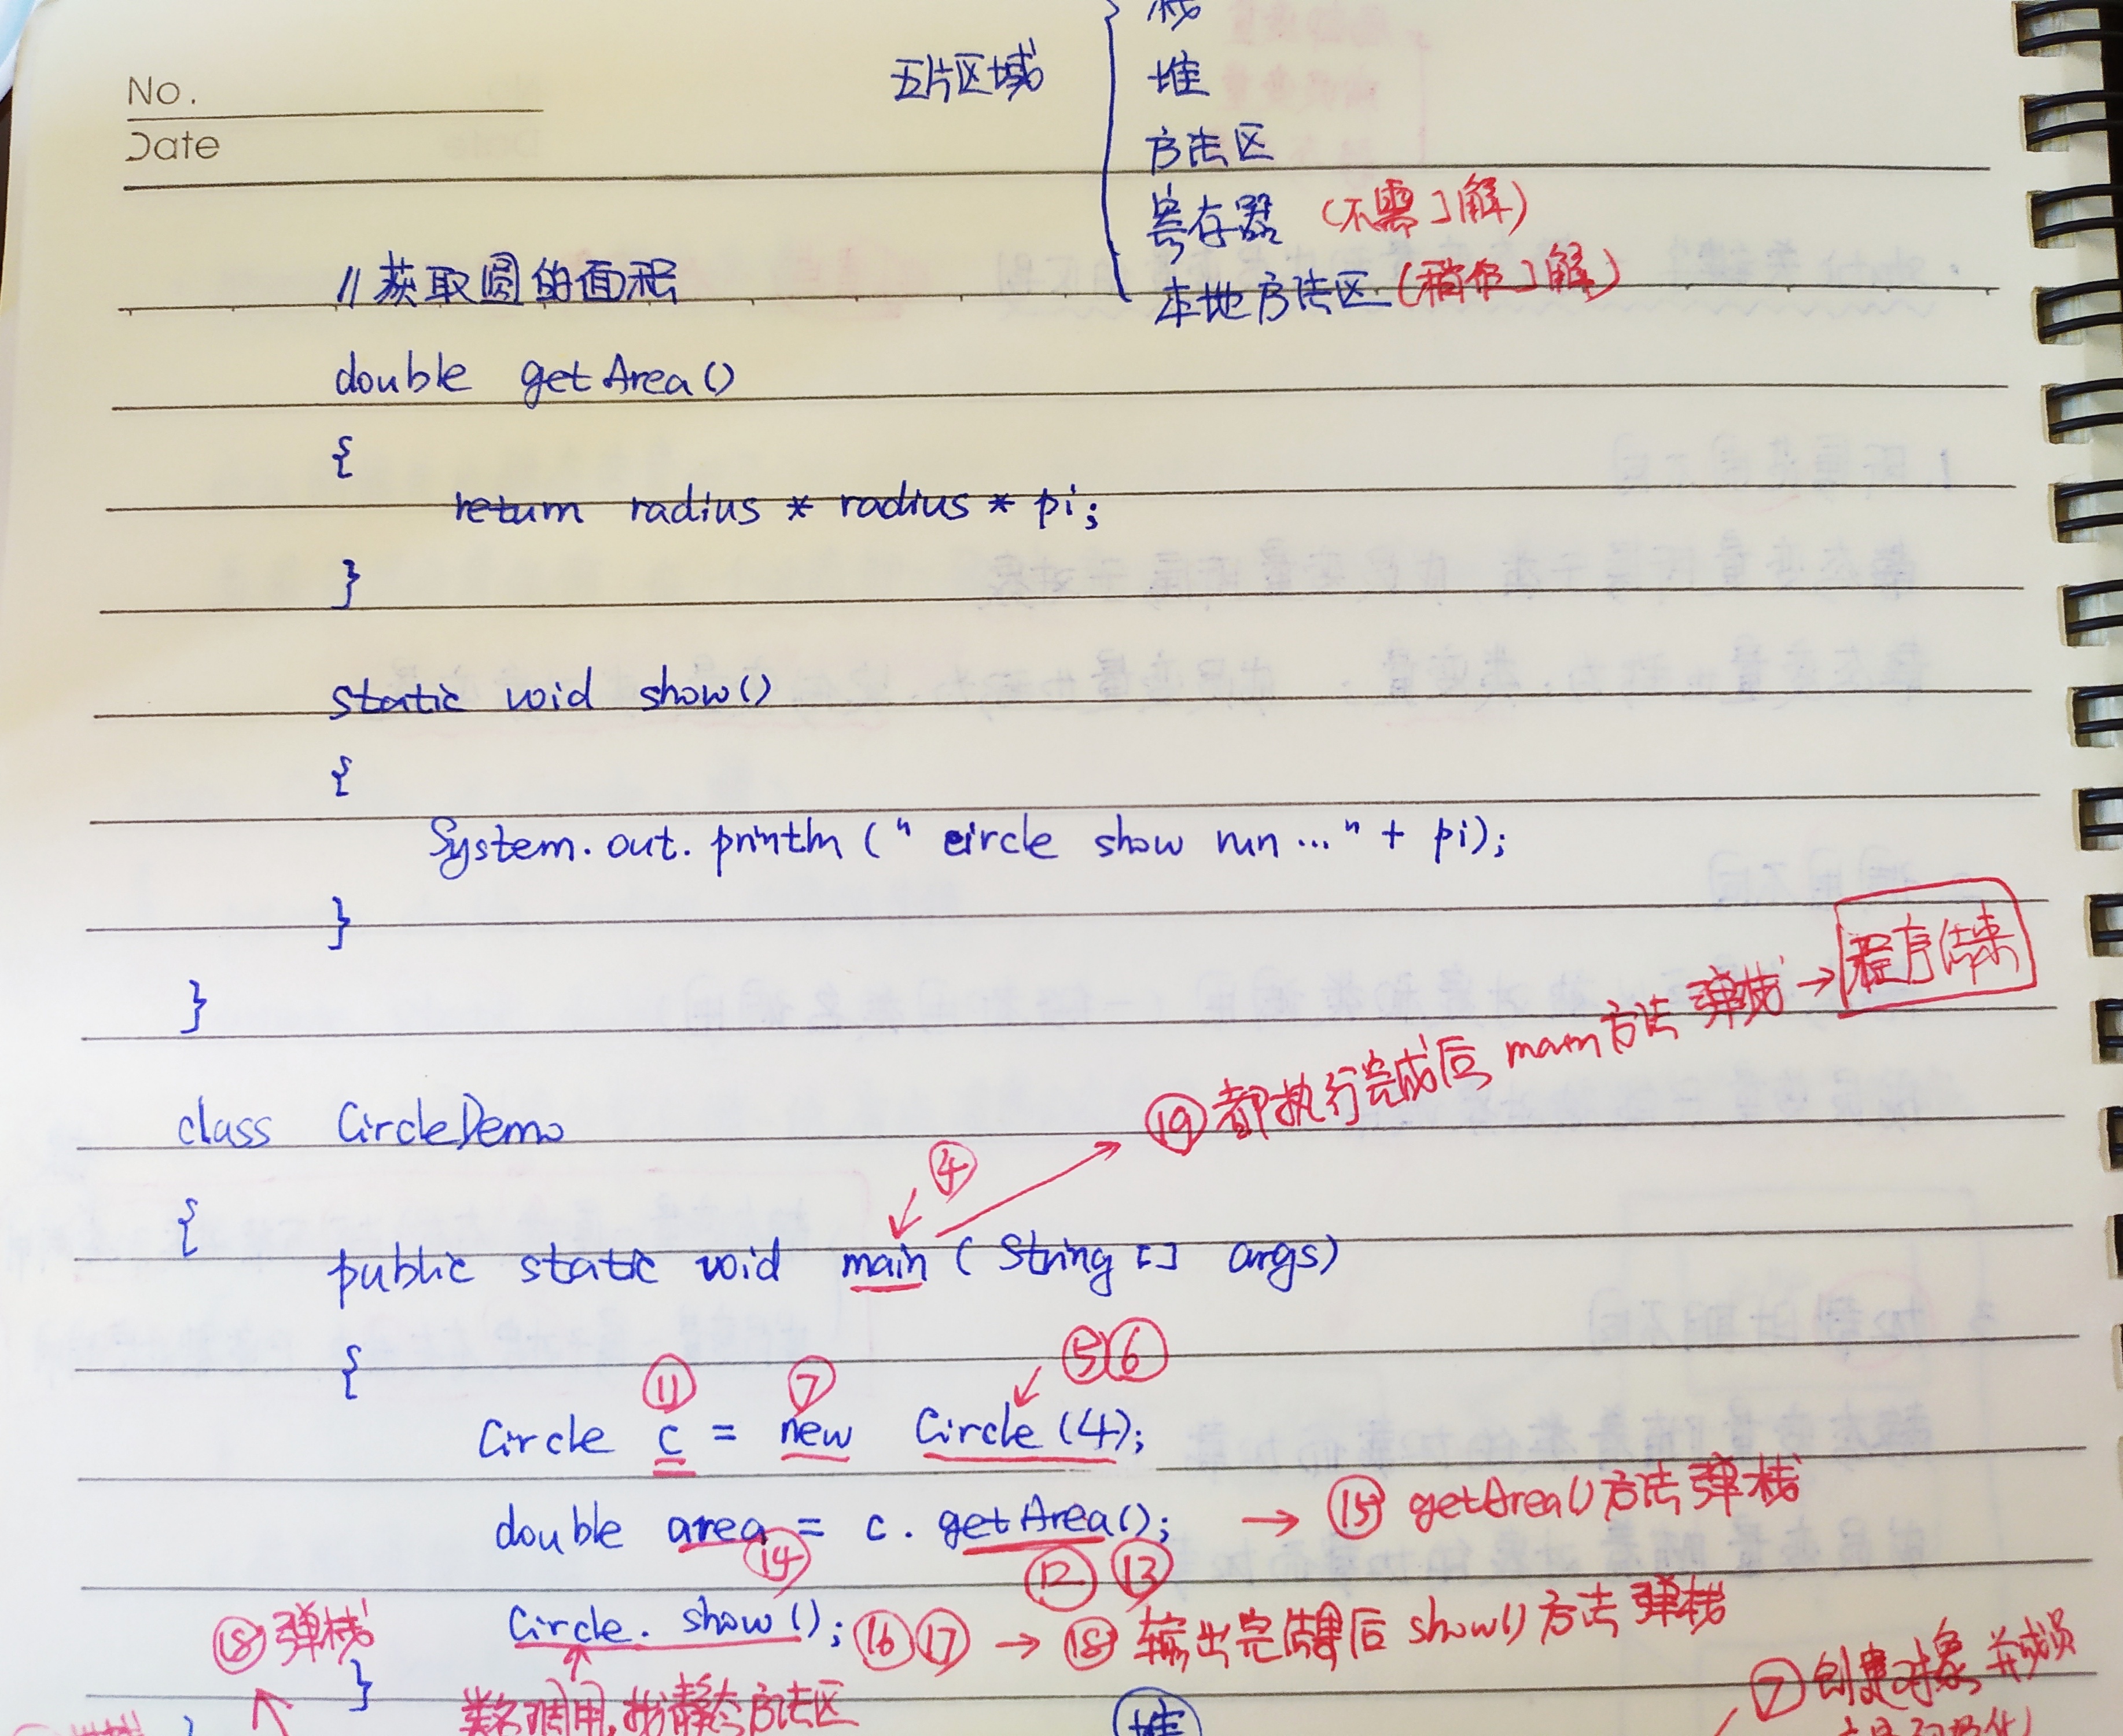 No.
Date
五片区域
栈
堆
方法区
寄存器 (不需了解)
本地方法区 (稍作了解)
//获取圆的面积
double getArea()
{
return radius * radius * pi;
}
static void show()
{
System.out.println(" circle show run ..." + pi);
}
}
⑲都执行完成后 main方法 弹栈 → 程序结束
class CircleDemo
④
{
public static void main ( String [] args)
{
⑪ ⑦ ⑤⑥
Circle c = new Circle (4);
double area = c . getArea(); → ⑮ getArea()方法 弹栈
⑭ ⑫ ⑬
⑱弹栈
Circle. show (); ⑯⑰ → ⑱ 输出完后 show()方法 弹栈
}
类名调用,找静态方法区
堆
⑦创建对象 并成员